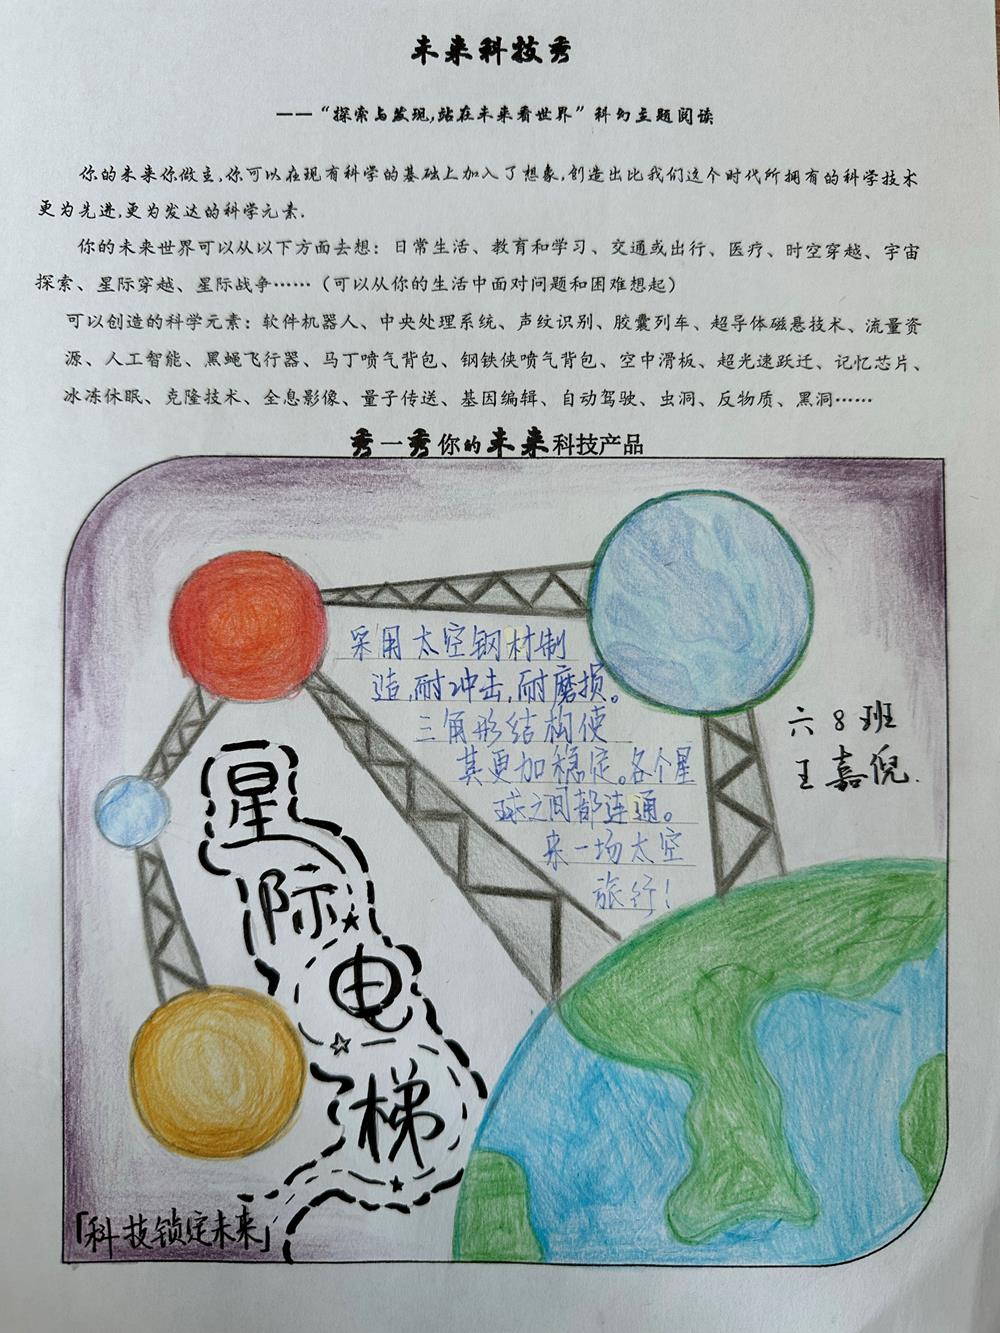 未来科技秀
——“探索与发现,站在未来看世界”科幻主题阅读
你的未来你做主,你可以在现有科学的基础上加入了想象,创造出比我们这个时代所拥有的科学技术
更为先进,更为发达的科学元素.
你的未来世界可以从以下方面去想：日常生活、教育和学习、交通或出行、医疗、时空穿越、宇宙
探索、星际穿越、星际战争……（可以从你的生活中面对问题和困难想起）
可以创造的科学元素：软件机器人、中央处理系统、声纹识别、胶囊列车、超导体磁悬技术、流量资
源、人工智能、黑蝇飞行器、马丁喷气背包、钢铁侠喷气背包、空中滑板、超光速跃迁、记忆芯片、
冰冻休眠、克隆技术、全息影像、量子传送、基因编辑、自动驾驶、虫洞、反物质、黑洞……
秀一秀你的未来科技产品
采用太空钢材制
造,耐冲击,耐磨损。
三角形结构使
其更加稳定。各个星
球之间都连通。
来一场太空
旅行！
六8班
王嘉倪.
星
际
电
梯
「科技锁定未来」